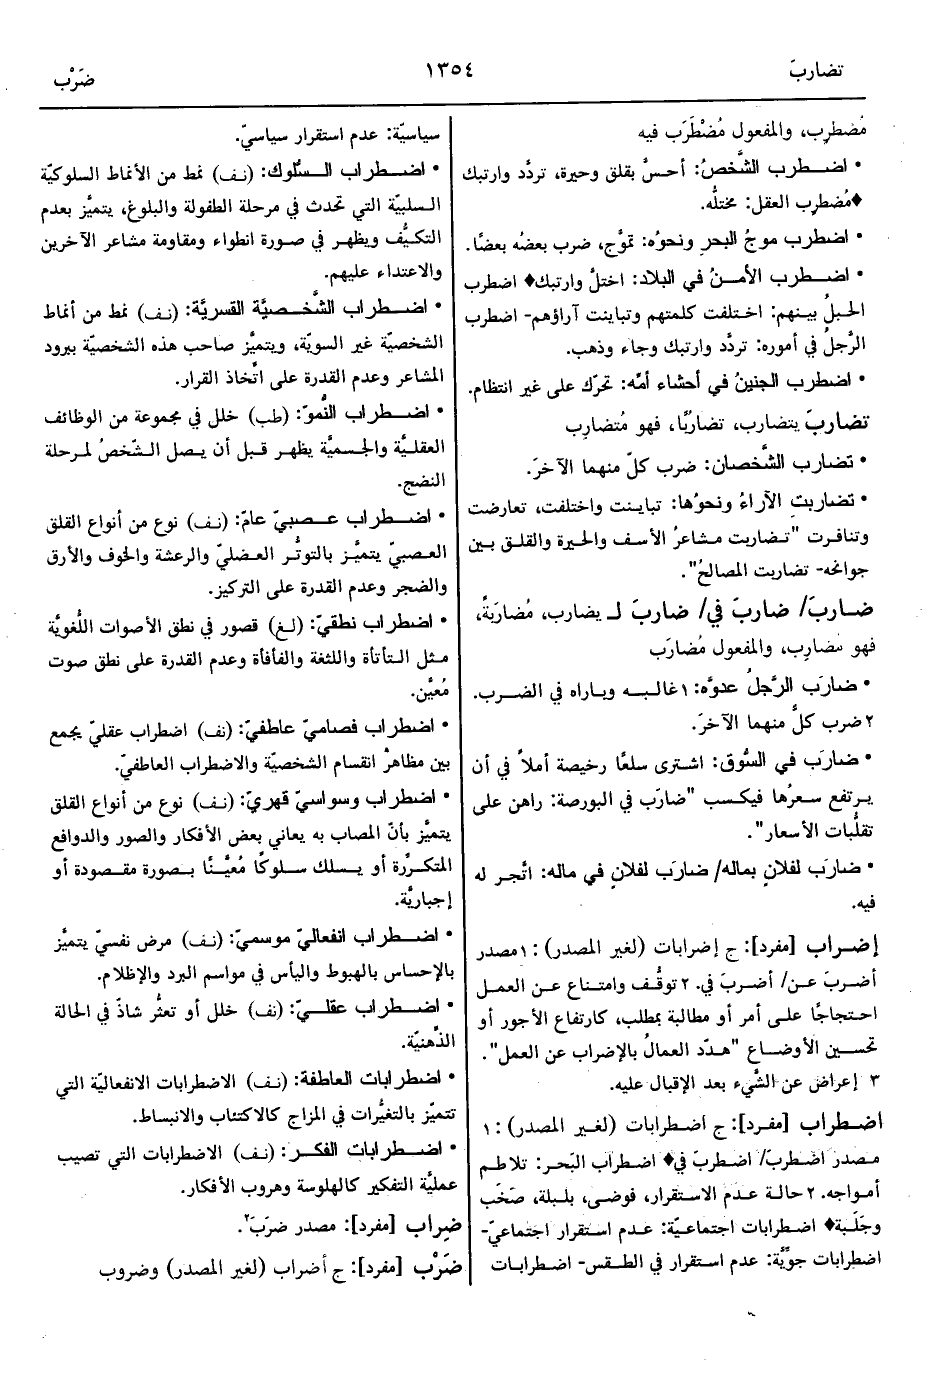 تضاربَ
١٣٥٤
ضَرْب
مُضطرِب، والمفعول مُضْطَرَب فيه
• اضـطرب الشَّخصُ: أحسَّ بقلق وحيرة، تردَّد وارتبك
♦مُضطرِب العقل: مختلُّه.
• اضطرب موجُ البحرِ ونحوُه: تموَّج، ضرب بعضُه بعضًا.
• اضـطرب الأمـنُ في البلاد: اختلَّ وارتبك♦ اضطرب
الحبلُ بينهم: اختلفت كلمتهم وتباينت آراؤهم- اضطرب
الرَّجلُ في أموره: تردَّد وارتبك وجاء وذهب.
• اضطرب الجنينُ في أحشاء أمّه: تحرّك على غير انتظام.
تضاربَ يتضارب، تضاربًا، فهو مُتضارِب
• تضارب الشَّخصان: ضرب كلّ منهما الآخرَ.
• تضاربتِ الآراءُ ونحوُها: تباينت واختلفت، تعارضت
وتنافرت "تضاربت مشاعرُ الأسف والحيرة والقلق بين
جوانحه- تضاربت المصالحُ".
ضاربَ/ ضاربَ في/ ضاربَ لـ يضارب، مُضارَبةً،
فهو مُضارِب، والمفعول مُضارَب
• ضارَب الرَّجلُ عدوَّه: ١غالبه وباراه في الضرب.
٢ضرب كلُّ منهما الآخرَ.
• ضارَب في السُّوق: اشترى سلعًا رخيصة أملاً في أن
يرتفع سعرُها فيكسب "ضارَب في البورصة: راهن على
تقلُّبات الأسعار".
• ضارَب لفلانٍ بماله/ ضارَب لفلانٍ في ماله: اتَّجر له
فيه.
إضراب [مفرد]: ج إضرابات (لغير المصدر): ١مصدر
أضربَ عن/ أضربَ في. ٢توقُّف وامتناع عن العمل
احتجاجًا على أمر أو مطالبة بمطلب، كارتفاع الأجور أو
تحسين الأوضاع "هدّد العمالُ بالإضراب عن العمل".
٣ إعراض عن الشَّيء بعد الإقبال عليه.
اضطراب [مفرد]: ج اضطرابات (لغير المصدر): ١
مصدر اضطربَ/ اضطربَ في♦ اضطراب البَحر: تلاطم
أمواجه. ٢حالة عدم الاستقرار، فوضى، بلبلة، صَخَب
وجَلَبة♦ اضطرابات اجتماعيّة: عدم استقرار اجتماعيّ-
اضطرابات جوِّيَّة: عدم استقرار في الطقس- اضطرابات
سياسيّة: عدم استقرار سياسيّ.
• اضطراب السُّلوك: (نف) نمط من الأنماط السلوكيّة
السلبية التي تحدث في مرحلة الطفولة والبلوغ، يتميَّز بعدم
التكيُّف ويظهر في صورة انطواء ومقاومة مشاعر الآخرين
والاعتداء عليهم.
• اضطراب الشَّخصيَّة القسريَّة: (نف) نمط من أنماط
الشخصيّة غير السويّة، ويتميَّز صاحب هذه الشخصيّة ببرود
المشاعر وعدم القدرة على اتِّخاذ القرار.
• اضطراب النُّموّ: (طب) خلل في مجموعة من الوظائف
العقليَّة والجسميَّة يظهر قبل أن يصل الشّخصُ لمرحلة
النضج.
• اضطراب عصبيّ عامّ: (نف) نوع من أنواع القلق
العصبيّ يتميَّز بالتوتُّر العضليّ والرعشة والخوف والأرق
والضجر وعدم القدرة على التركيز.
• اضطراب نطقيّ: (لغ) قصور في نطق الأصوات اللُّغويَّة
مثل التأتأة واللثغة والفأفأة وعدم القدرة على نطق صوت
مُعيَّن.
• اضطراب فصاميّ عاطفيّ: (نف) اضطراب عقليّ يجمع
بين مظاهرُ انقسام الشخصيّة والاضطراب العاطفيّ.
• اضطراب وسواسيّ قهريّ: (نف) نوع من أنواع القلق
يتميَّز بأنّ المصاب به يعاني بعض الأفكار والصور والدوافع
المتكرِّرة أو يسلك سلوكًا مُعيَّنًا بصورة مقصودة أو
إجباريَّة.
• اضطراب انفعاليّ موسميّ: (نف) مرض نفسيّ يتميَّز
بالإحساس بالهبوط واليأس في مواسم البرد والإظلام.
• اضطراب عقليّ: (نف) خلل أو تعثُّر شاذّ في الحالة
الذِّهنيّة.
• اضطرابات العاطفة: (نف) الاضطرابات الانفعاليّة التي
تتميّز بالتغيُّرات في المزاج كالاكتئاب والانبساط.
• اضطرابات الفكر: (نف) الاضطرابات التي تصيب
عمليَّة التفكير كالهلوسة وهروب الأفكار.
ضِراب [مفرد]: مصدر ضرَبَ٢.
ضَرْب [مفرد]: ج أضراب (لغير المصدر) وضروب